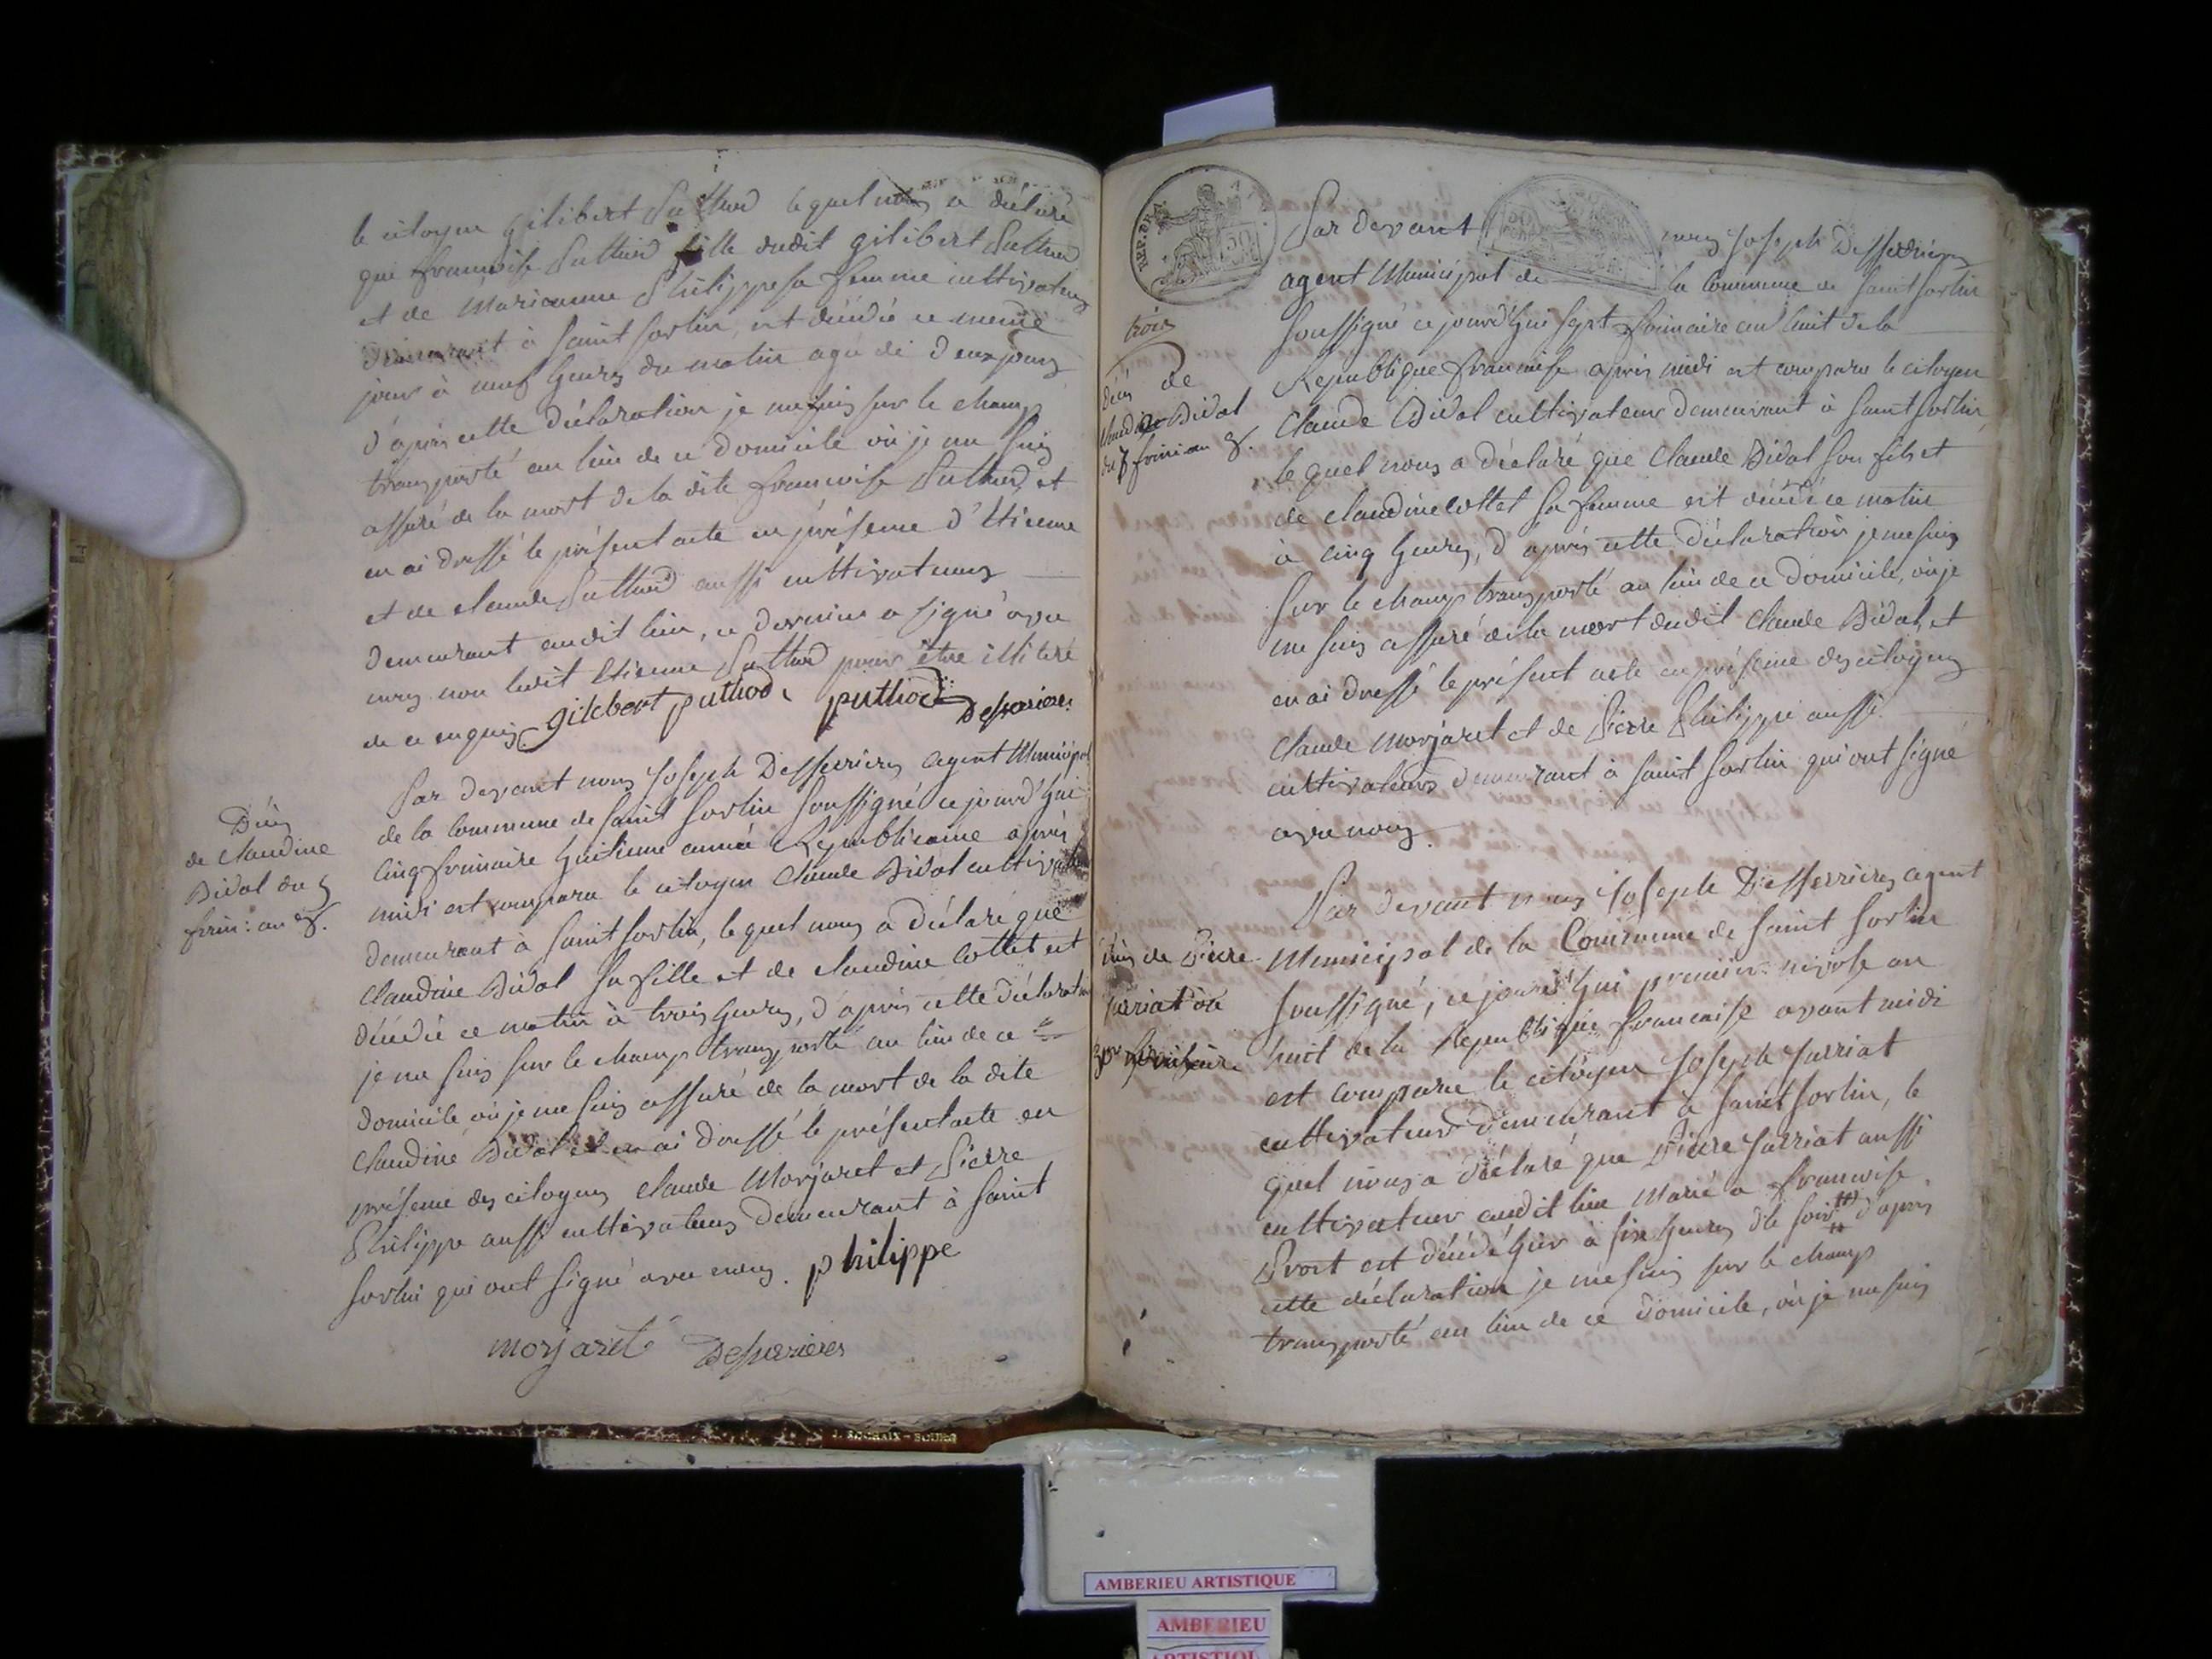 le citoyen gilibert Puthod lequel nous a déclaré
que francoise Puthod fille dudit gilibert Puthod
et de Marianne Philippe sa femme cultivateurs
demeurant à Saint Sorlin, est décédée ce meme
jour à neuf heures du matin agée de deux jours
d'après cette déclaration je me suis sur le champ
transporté au lieu de ce domicile où je me suis
assuré de la mort de la dite francoise Puthod, et
en ai dressé le présent acte en présence d'Etienne
et de claude Puthod aussi cultivateurs
demeurant audit lieu, ce dernier a signé avec
nous non ledit Etienne Puthod pour être illitéré
de ce enquis gilebert puthod puthod Desserrieres
Décès
de Claudine
Bidal du 5
frim: an 8.
Par devant nous Joseph Desserrieres agent Municipal
de la Commune de Saint Sorlin soussigné ce jourd'hui
cinq frimaire huitieme année Republicaine après
midi est comparu le citoyen Claude Bidal cultivateur
demeurant à Saint Sorlin, lequel nous a déclaré que
Claudine Bidal sa fille et de claudine Cottet est
décédée ce matin à trois heures, d'après cette déclaration
je me suis sur le champ transporté au lieu de ce
domicile où je me suis assuré de la mort de la dite
Claudine Bidal et en ai dressé le présent acte en
présence des citoyens claude Morjaret et Pierre
Philippe aussi cultivateurs demeurant à Saint
Sorlin qui ont signé avec nous. philippe
morjaret Desserrieres
REP. FRA.
Par devant nous Joseph Desserrieres
agent Municipal de la Commune de Saint Sorlin
trois
soussigné ce jourd'hui sept frimaire an huit de la
Republique francaise après midi est comparu le citoyen
Décès de
Claude Bidal
du 7 frim: an 8.
Claude Bidal cultivateur demeurant à Saint Sorlin,
lequel nous a déclaré que Claude Bidal son fils et
de claudine Cottet sa femme est décédé ce matin
à cinq heures, d'après cette déclaration je me suis
sur le champ transporté au lieu de ce domicile, où je
me suis assuré de la mort dudit Claude Bidal, et
en ai dressé le présent acte en présence des citoyens
Claude Morjaret et de Pierre Philippe aussi
cultivateurs demeurant à Saint Sorlin qui ont signé
avec nous.
Par devant nous Joseph Desserrieres agent
décès de Pierre
Municipal de la Commune de Saint Sorlin
soussigné, ce jourd'hui premier nivose an
huit de la Republique francaise avant midi
est comparu le citoyen Joseph Jarriat
cultivateur demeurant à Saint Sorlin, le
quel nous a déclaré que Pierre Jarriat aussi
cultivateur audit lieu marié a francoise
Prost est décédé hier à six heures du soir d'après
cette déclaration je me suis sur le champ
transporté au lieu de ce domicile, où je me suis
AMBERIEU ARTISTIQUE
AMBERIEU
ARTISTIQU